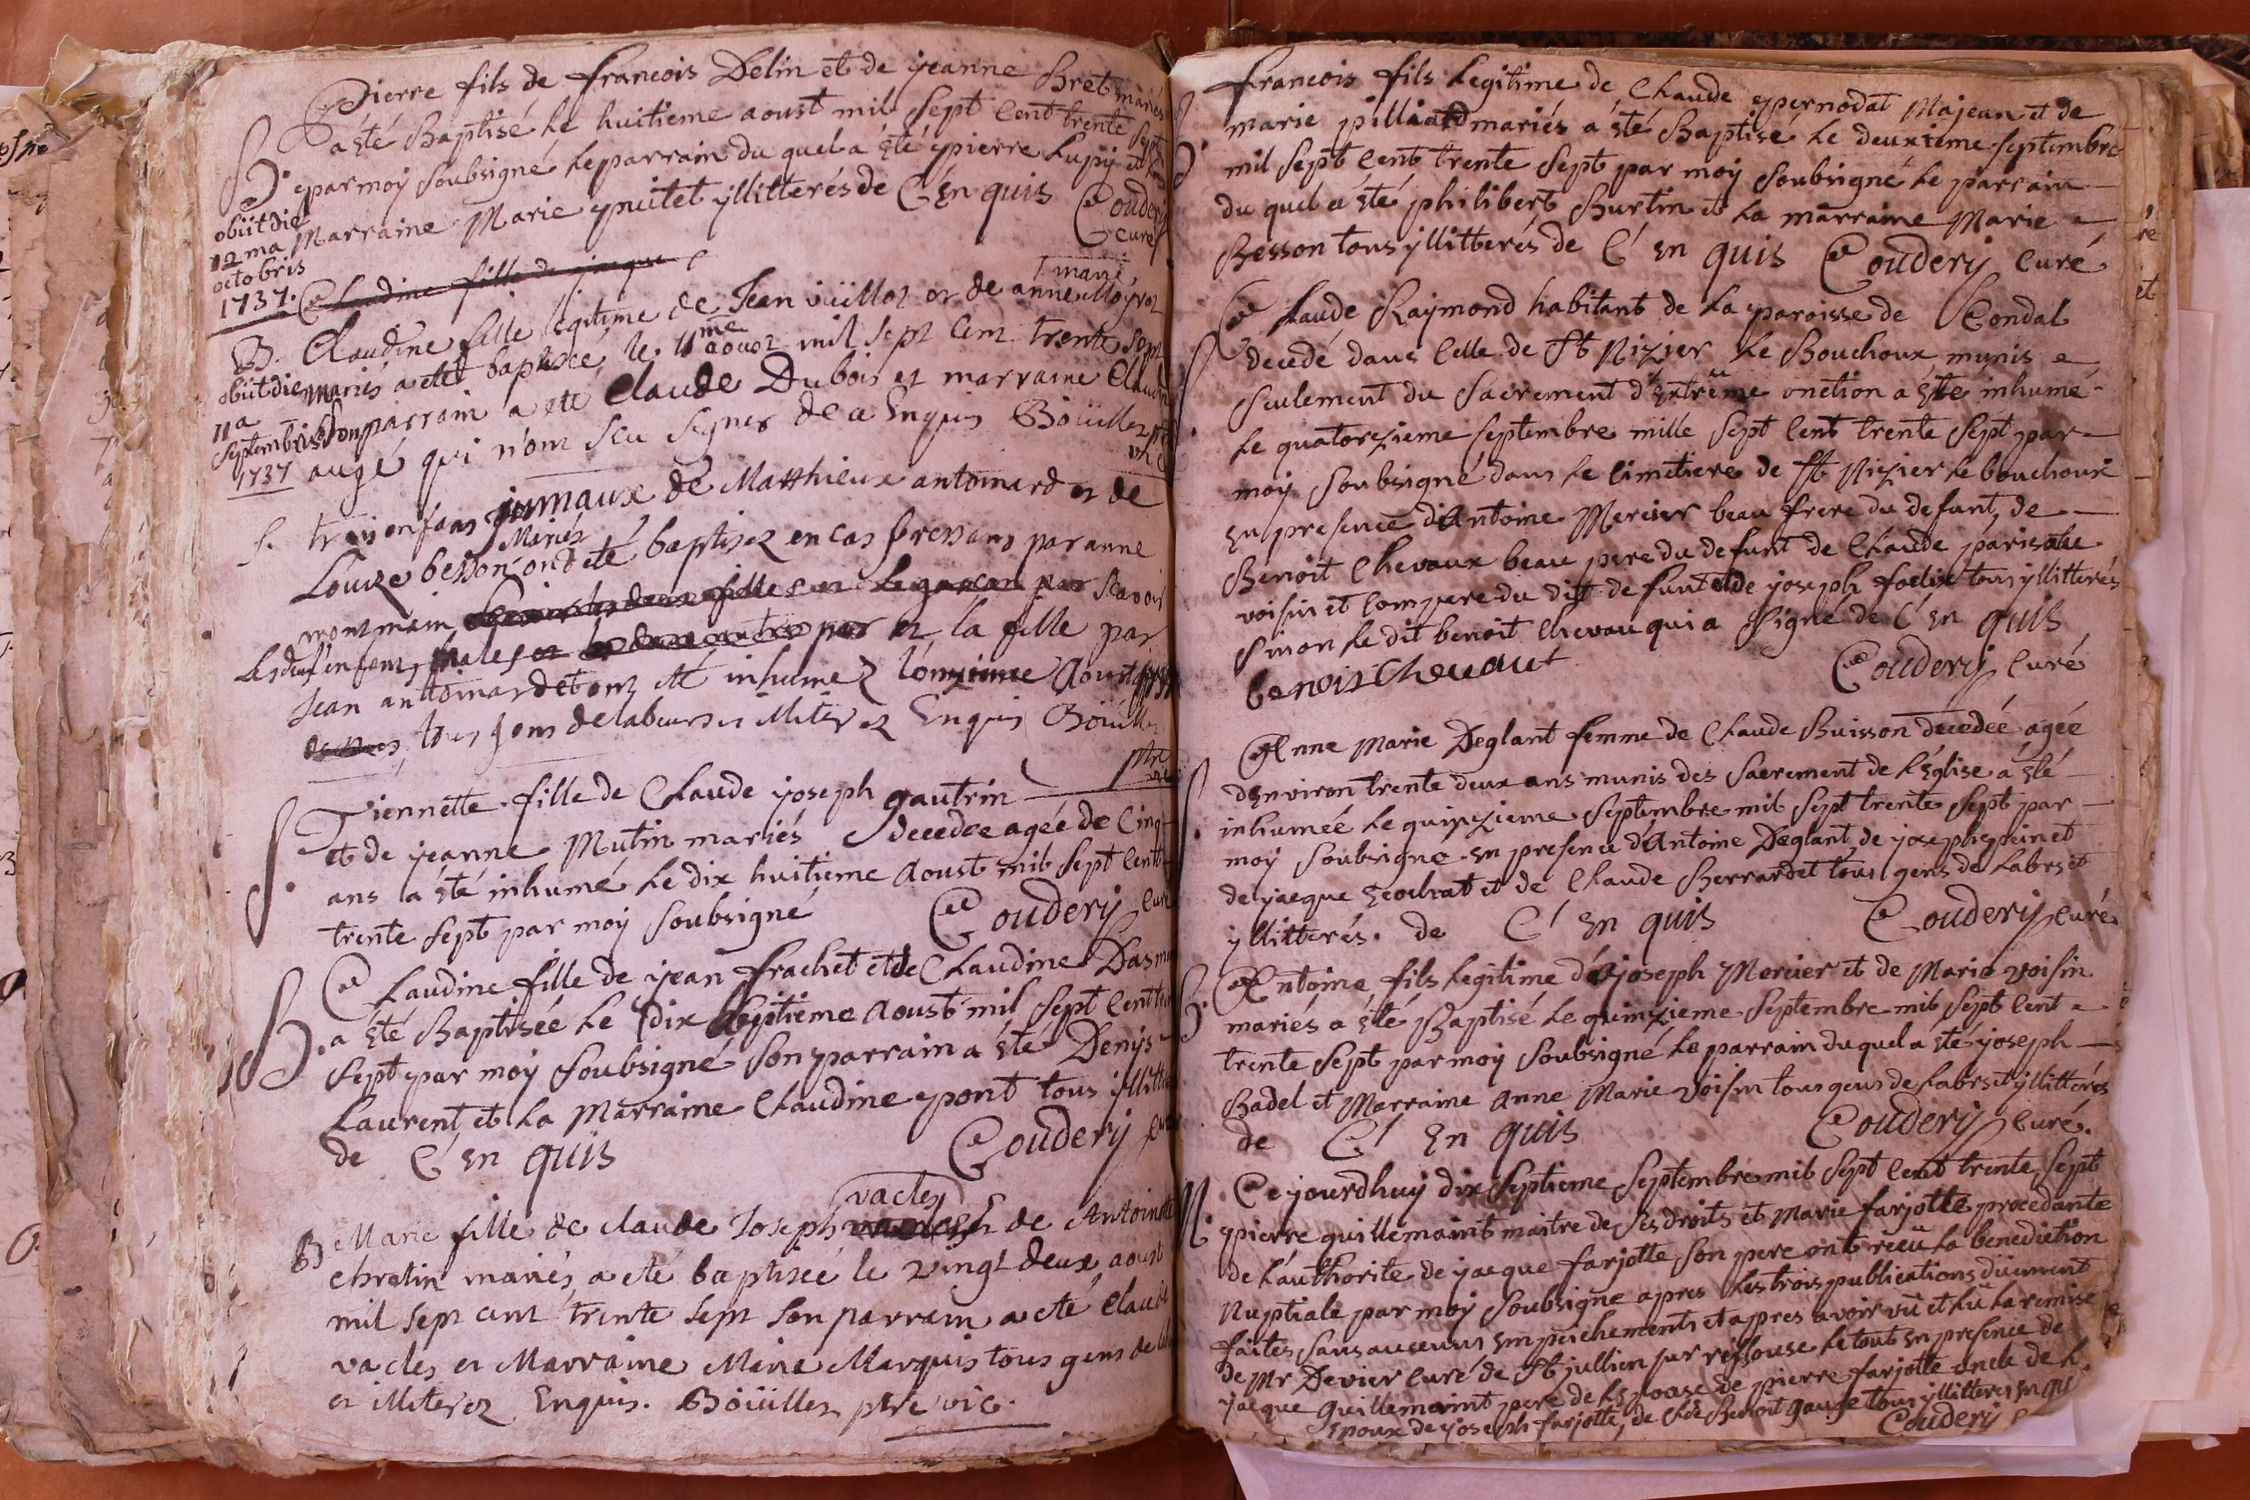 Pierre fils de francois Delin et de jeanne Bret mariés
a été Baptisé Le huitieme aoust mil sept Cent trente sept
B. par moy soubsigné Le parrain du quel a été pierre Lupy et
Marraine Marie puitet yllitterés de C'en quis Coudery
curé
obiit die
12 ma
octobris
1737.
Claudine fille de jaque
B. Claudine fille legitime de Jean vüilloz et de anne Moyroz
mariés a eté baptisée le 11me aoust mil sept cent trente sept
son parrain a ete Claude Dubois et marraine Claudine
augé qui n'ont sçu signer de ce Enquis Boüillez ptre
vic
obiit die
11a
septembris
1737
S. trois enfans jumaux de Matthieux antoinard et de
Louize besson Mariés ont eté baptisez en cas pressans par anne
montmain scavoir
Les deux enfans males et la fille par
Jean antoinard et ont eté inhumez l'onzieme Aoust 1737
tous gens de labeurs et illiterez Enquis Boüillez
ptre
vic
S. Tiennette fille de Claude joseph gautrin
et de jeanne Mutin mariés decedée agée de Cinq
ans a été inhumé Le dix huitieme Aoust mil sept Cent
trente sept par moy soubsigné Coudery Curé
B. Claudine fille de jean frachet et de Claudine
a été Baptisée Le dix huitieme Aoust mil sept Cent
sept par moy soubsigné son parrain a été Denys
Laurent et La Marraine Claudine pont tous illitt
de C'en quis Coudery curé
vacles
B Marie fille de claude Joseph et de Antoinette
chratin mariés, a eté baptisée le vingt deux aoust
mil sept cent trente sept son parrain a eté Claude
vacles et Marraine Marie Marquis tous gens de
et illiterez Enquis. Boüillez ptre vic.
francois fils Legitime de Claude pernodat Majean et de
B. marie pilliard mariés a été Baptisé Le deuxieme septembre
mil sept Cent trente sept par moy soubsigné Le parrain
du quel a été philibert Burtin et La marraine Marie
Besson tous yllitterés de C' en quis Coudery Curé
S. Claude Raymond habitant de La paroisse de Condal
decedé dans Celle de St Nizier Le Bouchoux munis
seulement du sacrement d'Extrême onction a été inhumé
Le quatorzieme septembre mille sept Cent trente sept par
moy soubsigné dans Le Cimetiere de St Nizier Le bouchoux
En presence d'Antoine Mercier beau frere du defunt, de
Benoit Chevaux beau pere du defunt de Claude
voisin et Compere du dit defunt et de joseph foelix tous yllitterés
sinon Le dit benoit Chevau qui a signé de C' en quis
benoit Chevaut Coudery Curé
S. Anne Marie Deglant femme de Claude Buisson decedée agée
d'Environ trente deux ans munis des sacrement de L'Église a été
inhumée Le quinzieme septembre mil sept trente sept par
moy soubsigné en presence d'Antoine Deglant, de joseph pein et
de jacque Ecochat et de Claude Berrardet tous gens de Labrs et
yllitterés. de C' en quis Coudery Curé
B. Antoine fils Legitime de joseph Mercier et de Marie voisin
mariés a été Baptisé Le quinzieme septembre mil sept Cent
trente sept par moy soubsigné Le parrain duquel a été joseph
Badel et Marraine Anne Marie voisin tous gens de Labrs et yllitterés
de C' en quis Coudery Curé.
M. Ce jourdhuy dix septieme septembre mil sept Cent trente sept
pierre guillemaint maitre de ses droits et Marie farjotte procedante
de L'authorite de jacque farjotte son pere ont réçû La benediction
Nuptiale par moy soubsigné apres Les trois publications düement
faites sans aucuns empeichements et apres avoir vû et Lû La remise
de Mr Devier Curé de St jullien sur reissouse Le tout en presence de
jacque guillemaint pere de L'Epouse de pierre farjotte oncle de L.
Epoux de joseph farjotte, de Cde Benoit gauge tous yllitterés En qui
Coudery